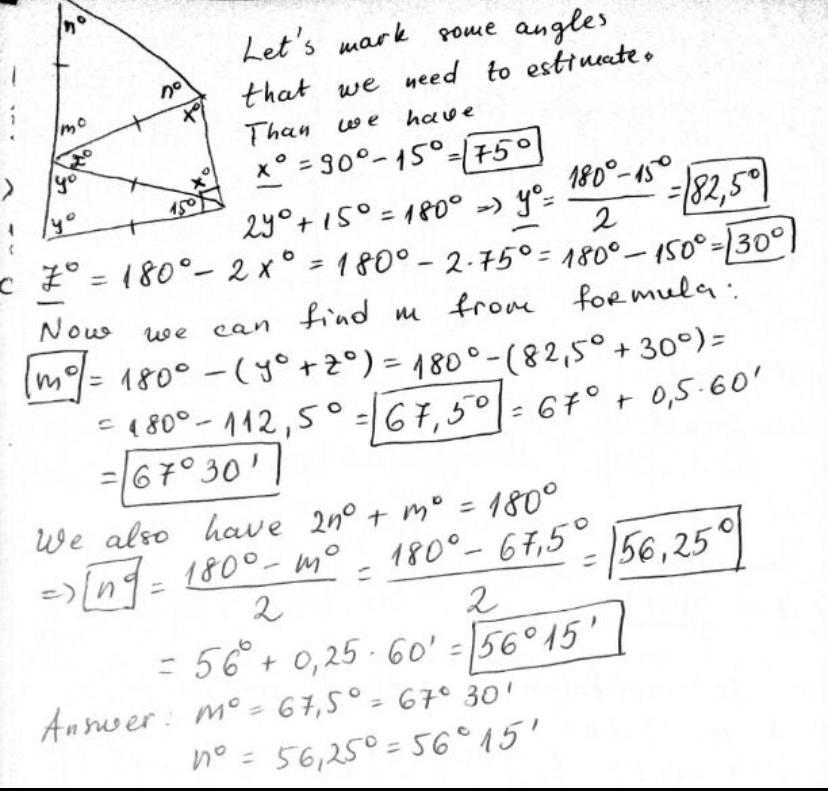 n°
Let's mark some angles
that we need to estimate.
n°
x°
Than we have
m°
z°
x° = 90° - 15° = 75°
y°
x°
15°
2y° + 15° = 180° => y° = (180° - 15°)/2 = 82,5°
y°
z° = 180° - 2x° = 180° - 2·75° = 180° - 150° = 30°
Now we can find m from formula:
m° = 180° - (y° + z°) = 180° - (82,5° + 30°) =
= 180° - 112,5° = 67,5° = 67° + 0,5·60'
= 67° 30'
We also have 2n° + m° = 180°
=> n° = (180° - m°)/2 = (180° - 67,5°)/2 = 56,25°
= 56° + 0,25·60' = 56° 15'
Answer: m° = 67,5° = 67° 30'
n° = 56,25° = 56° 15'